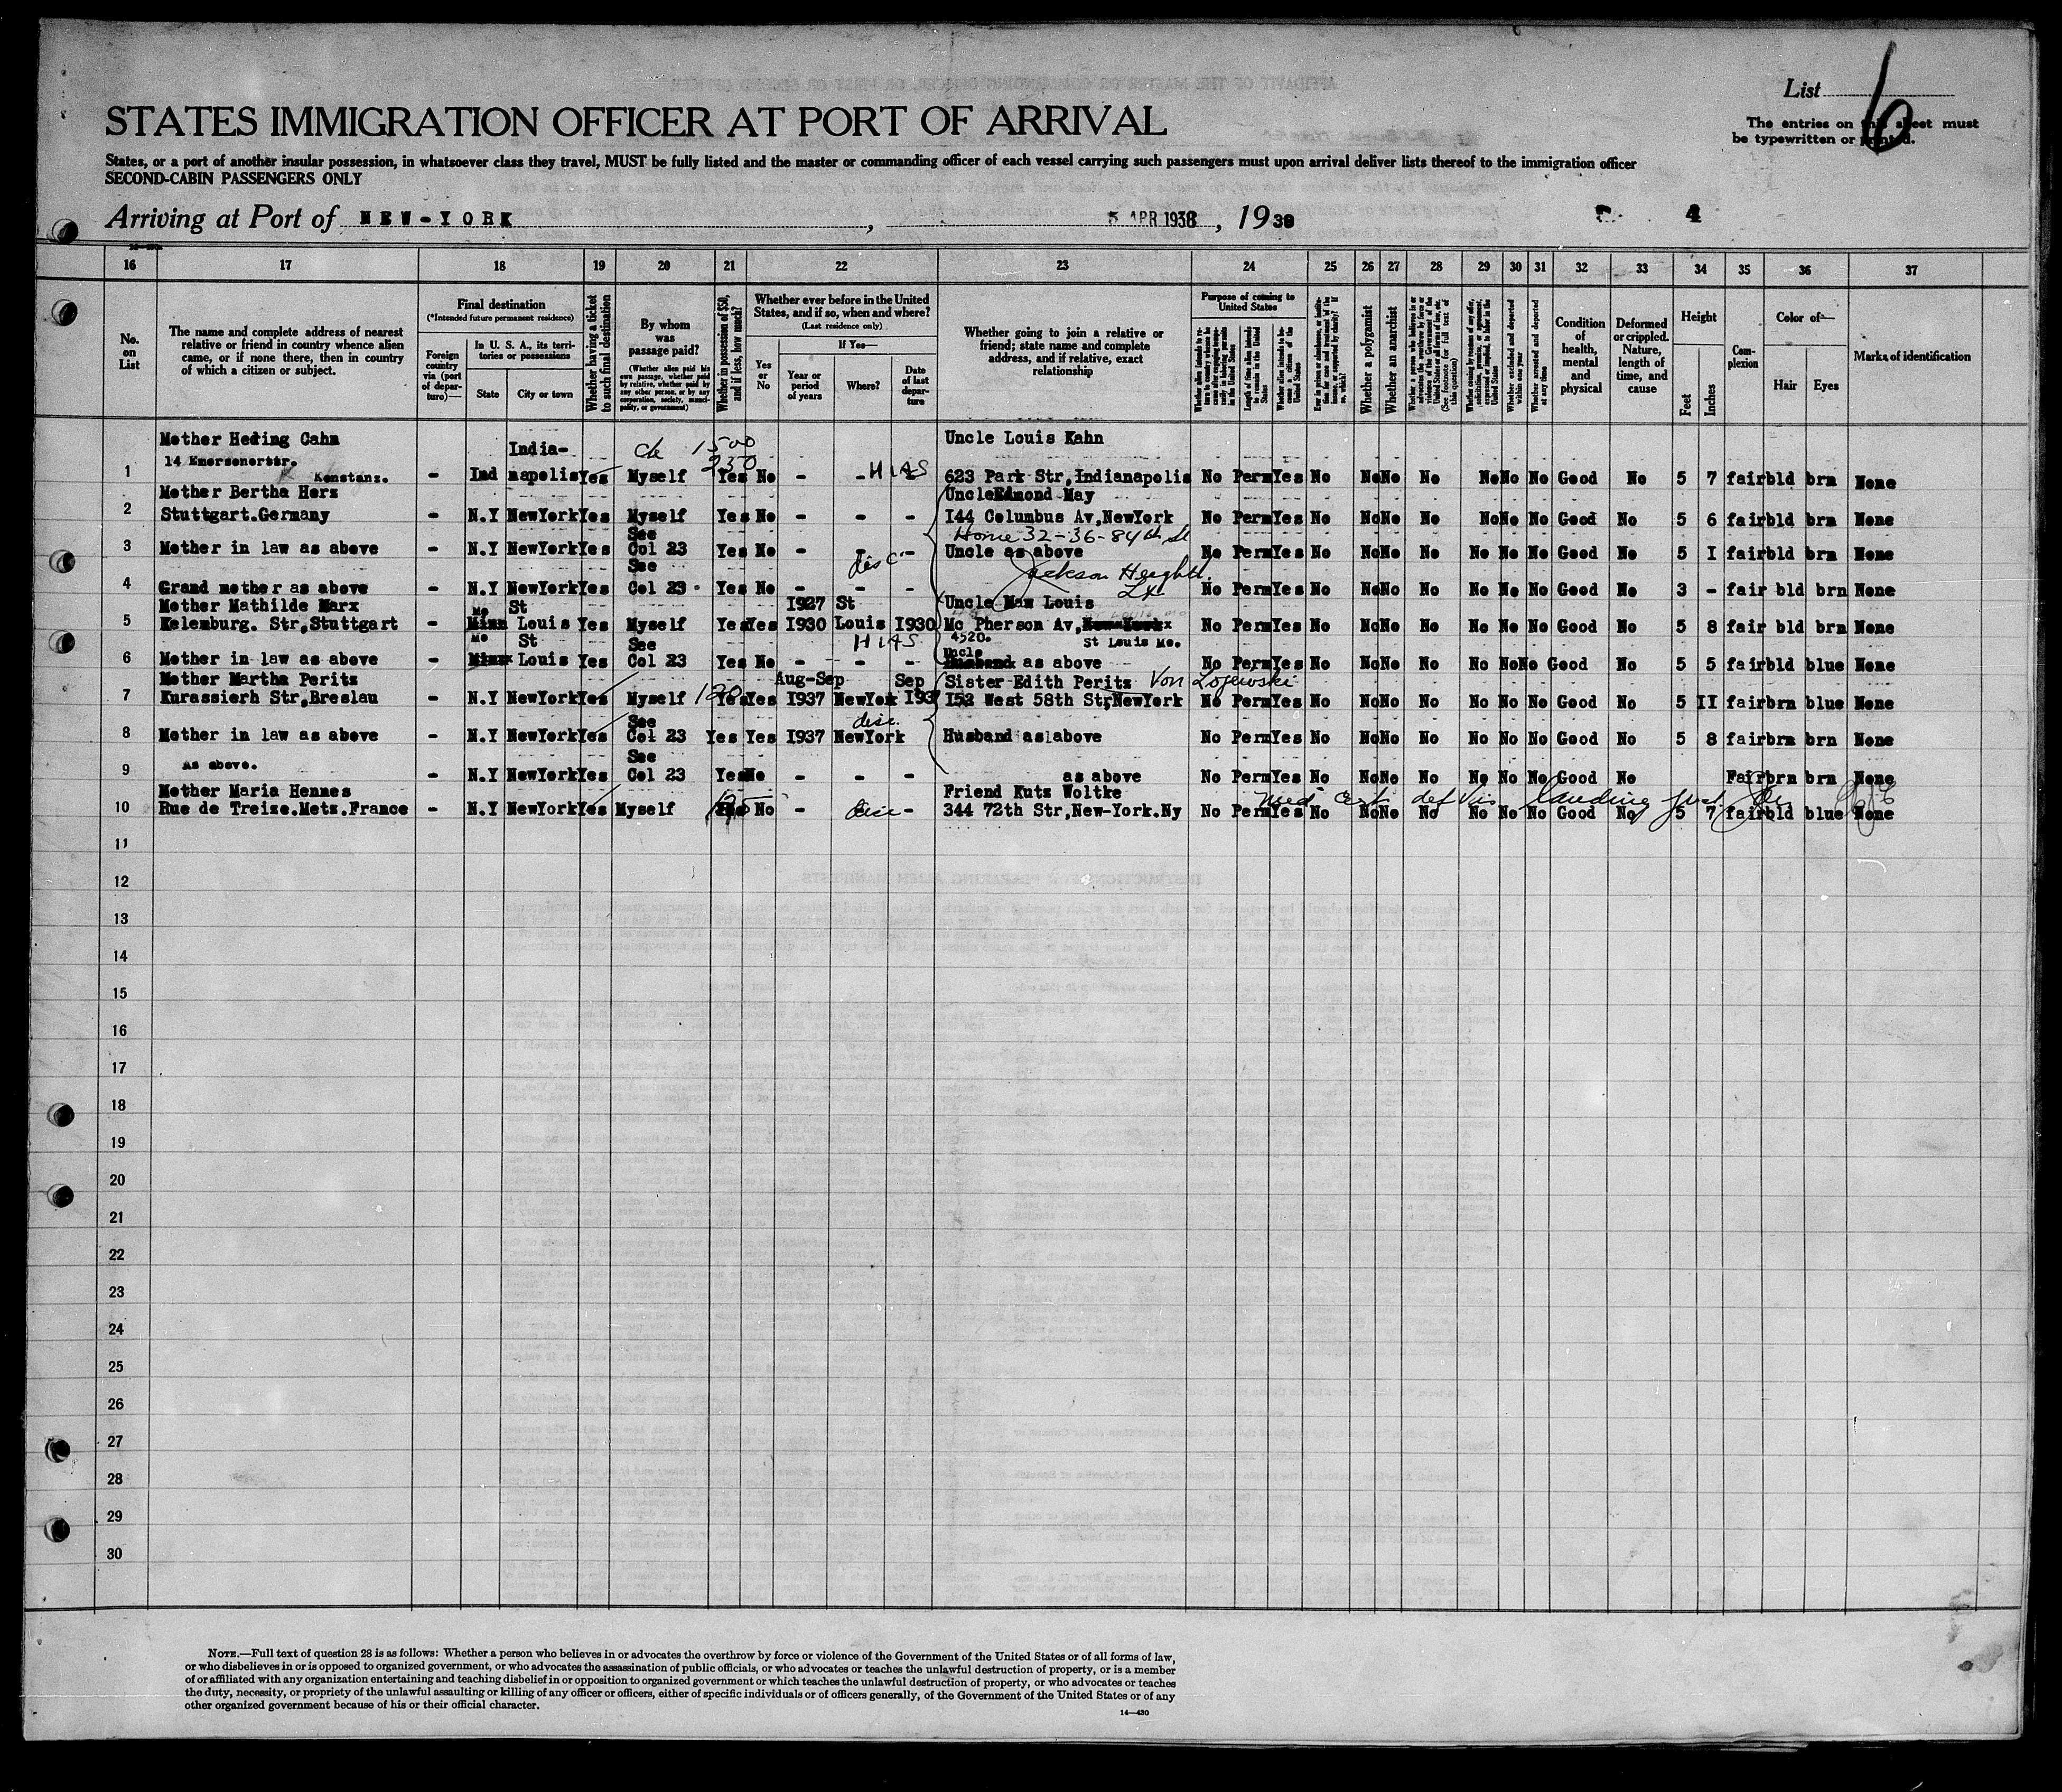 List 6
STATES IMMIGRATION OFFICER AT PORT OF ARRIVAL
The entries on this sheet must
be typewritten or printed.
States, or a port of another insular possession, in whatsoever class they travel, MUST be fully listed and the master or commanding officer of each vessel carrying such passengers must upon arrival deliver lists thereof to the immigration officer
SECOND-CABIN PASSENGERS ONLY
Arriving at Port of NEW-YORK, 5 APR 1938, 1938 4
16 17 18 19 20 21 22 23 24 25 26 27 28 29 30 31 32 33 34 35 36 37
No. on List
The name and complete address of nearest relative or friend in country whence alien came, or if none there, then in country of which a citizen or subject.
Final destination
(*Intended future permanent residence)
Foreign country via (port of departure)—
In U. S. A., its territories or possessions
State City or town
Whether having a ticket to such final destination
By whom was passage paid?
(Whether alien paid his own passage, whether paid by relative, whether paid by any other person, or by any corporation, society, municipality, or government)
Whether in possession of $50, and if less, how much?
Whether ever before in the United States, and if so, when and where?
(Last residence only)
If Yes—
Yes or No
Year or period of years
Where?
Date of last departure
Whether going to join a relative or friend; state name and complete address, and if relative, exact relationship
Purpose of coming to United States
Length of time alien intends to remain in the United States
Whether alien intends to become a citizen of the United States
Whether a polygamist
Whether an anarchist
Whether arrested and deported at any time
Condition of health, mental and physical
Deformed or crippled. Nature, length of time, and cause
Height
Feet Inches
Complexion
Color of—
Hair Eyes
Marks of identification
Mother Heding Cahn India- ch 1500 Uncle Louis Kahn
14 Emersenerstr. 250
1 Konstanz. - Ind napolis Yes Myself Yes No - - HIAS - 623 Park Str,Indianapolis No Perm Yes No No No No No No No Good No 5 7 fair bld brn None
Mother Bertha Herz Uncle Edmond May
2 Stuttgart.Germany - N.Y NewYork Yes Myself Yes No - - - I44 Columbus Av,NewYork No Perm Yes No No No No No No No Good No 5 6 fair bld brn None
See Home 32-36-84th St
3 Mother in law as above - N.Y NewYork Yes Col 23 Yes No - - - Uncle as above No Perm Yes No No No No No No No Good No 5 I fair bld brn None
See disc Jackson Heights
4 Grand mother as above - N.Y NewYork Yes Col 23 Yes No - - - No Perm Yes No No No No No No No Good No 3 - fair bld brn None
Mother Mathilde Marx Mo St I927 St Uncle Max Louis
5 Kelemburg. Str,Stuttgart - Minn Louis Yes Myself Yes Yes I930 Louis I930 Mc Pherson Av, New-York No Perm Yes No No No No No No No Good No 5 8 fair bld brn None
Mo St See HIAS 4520. St Louis Mo.
Uncle
6 Mother in law as above - Minn Louis Yes Col 23 Yes No - - - Husband as above No Perm Yes No No No No No No No Good No 5 5 fair bld blue None
Mother Martha Peritz Aug-Sep Sep Sister Edith Peritz Von Lojewski
7 Kurassierh Str,Breslau - N.Y NewYork Yes Myself 120 Yes Yes I937 NewYok I937 I52 West 58th Str,NewYork No Perm Yes No No No No No No No Good No 5 II fair brn blue None
See disc.
8 Mother in law as above - N.Y NewYork Yes Col 23 Yes Yes I937 NewYork Husband as above No Perm Yes No No No No No No No Good No 5 8 fair brn brn None
As above. See
9 - N.Y NewYork Yes Col 23 Yes No - - - as above No Perm Yes No No No No No No No Good No Fair brn brn None
Mother Maria Hennes Friend Kutz Woltke
med cert def vis landing
10 Rue de Treize.Metz.France - N.Y NewYork Yes Myself 125 No - disc - 344 72th Str,New-York.Ny No Perm Yes No No No No No No No Good No 5 7 fair bld blue None
11
12
13
14
15
16
17
18
19
20
21
22
23
24
25
26
27
28
29
30
NOTE.—Full text of question 28 is as follows: Whether a person who believes in or advocates the overthrow by force or violence of the Government of the United States or of all forms of law,
or who disbelieves in or is opposed to organized government, or who advocates the assassination of public officials, or who advocates or teaches the unlawful destruction of property, or is a member
of or affiliated with any organization entertaining and teaching disbelief in or opposition to organized government or which teaches the unlawful destruction of property, or who advocates or teaches
the duty, necessity, or propriety of the unlawful assaulting or killing of any officer or officers, either of specific individuals or of officers generally, of the Government of the United States or of any
other organized government because of his or their official character.
14—430